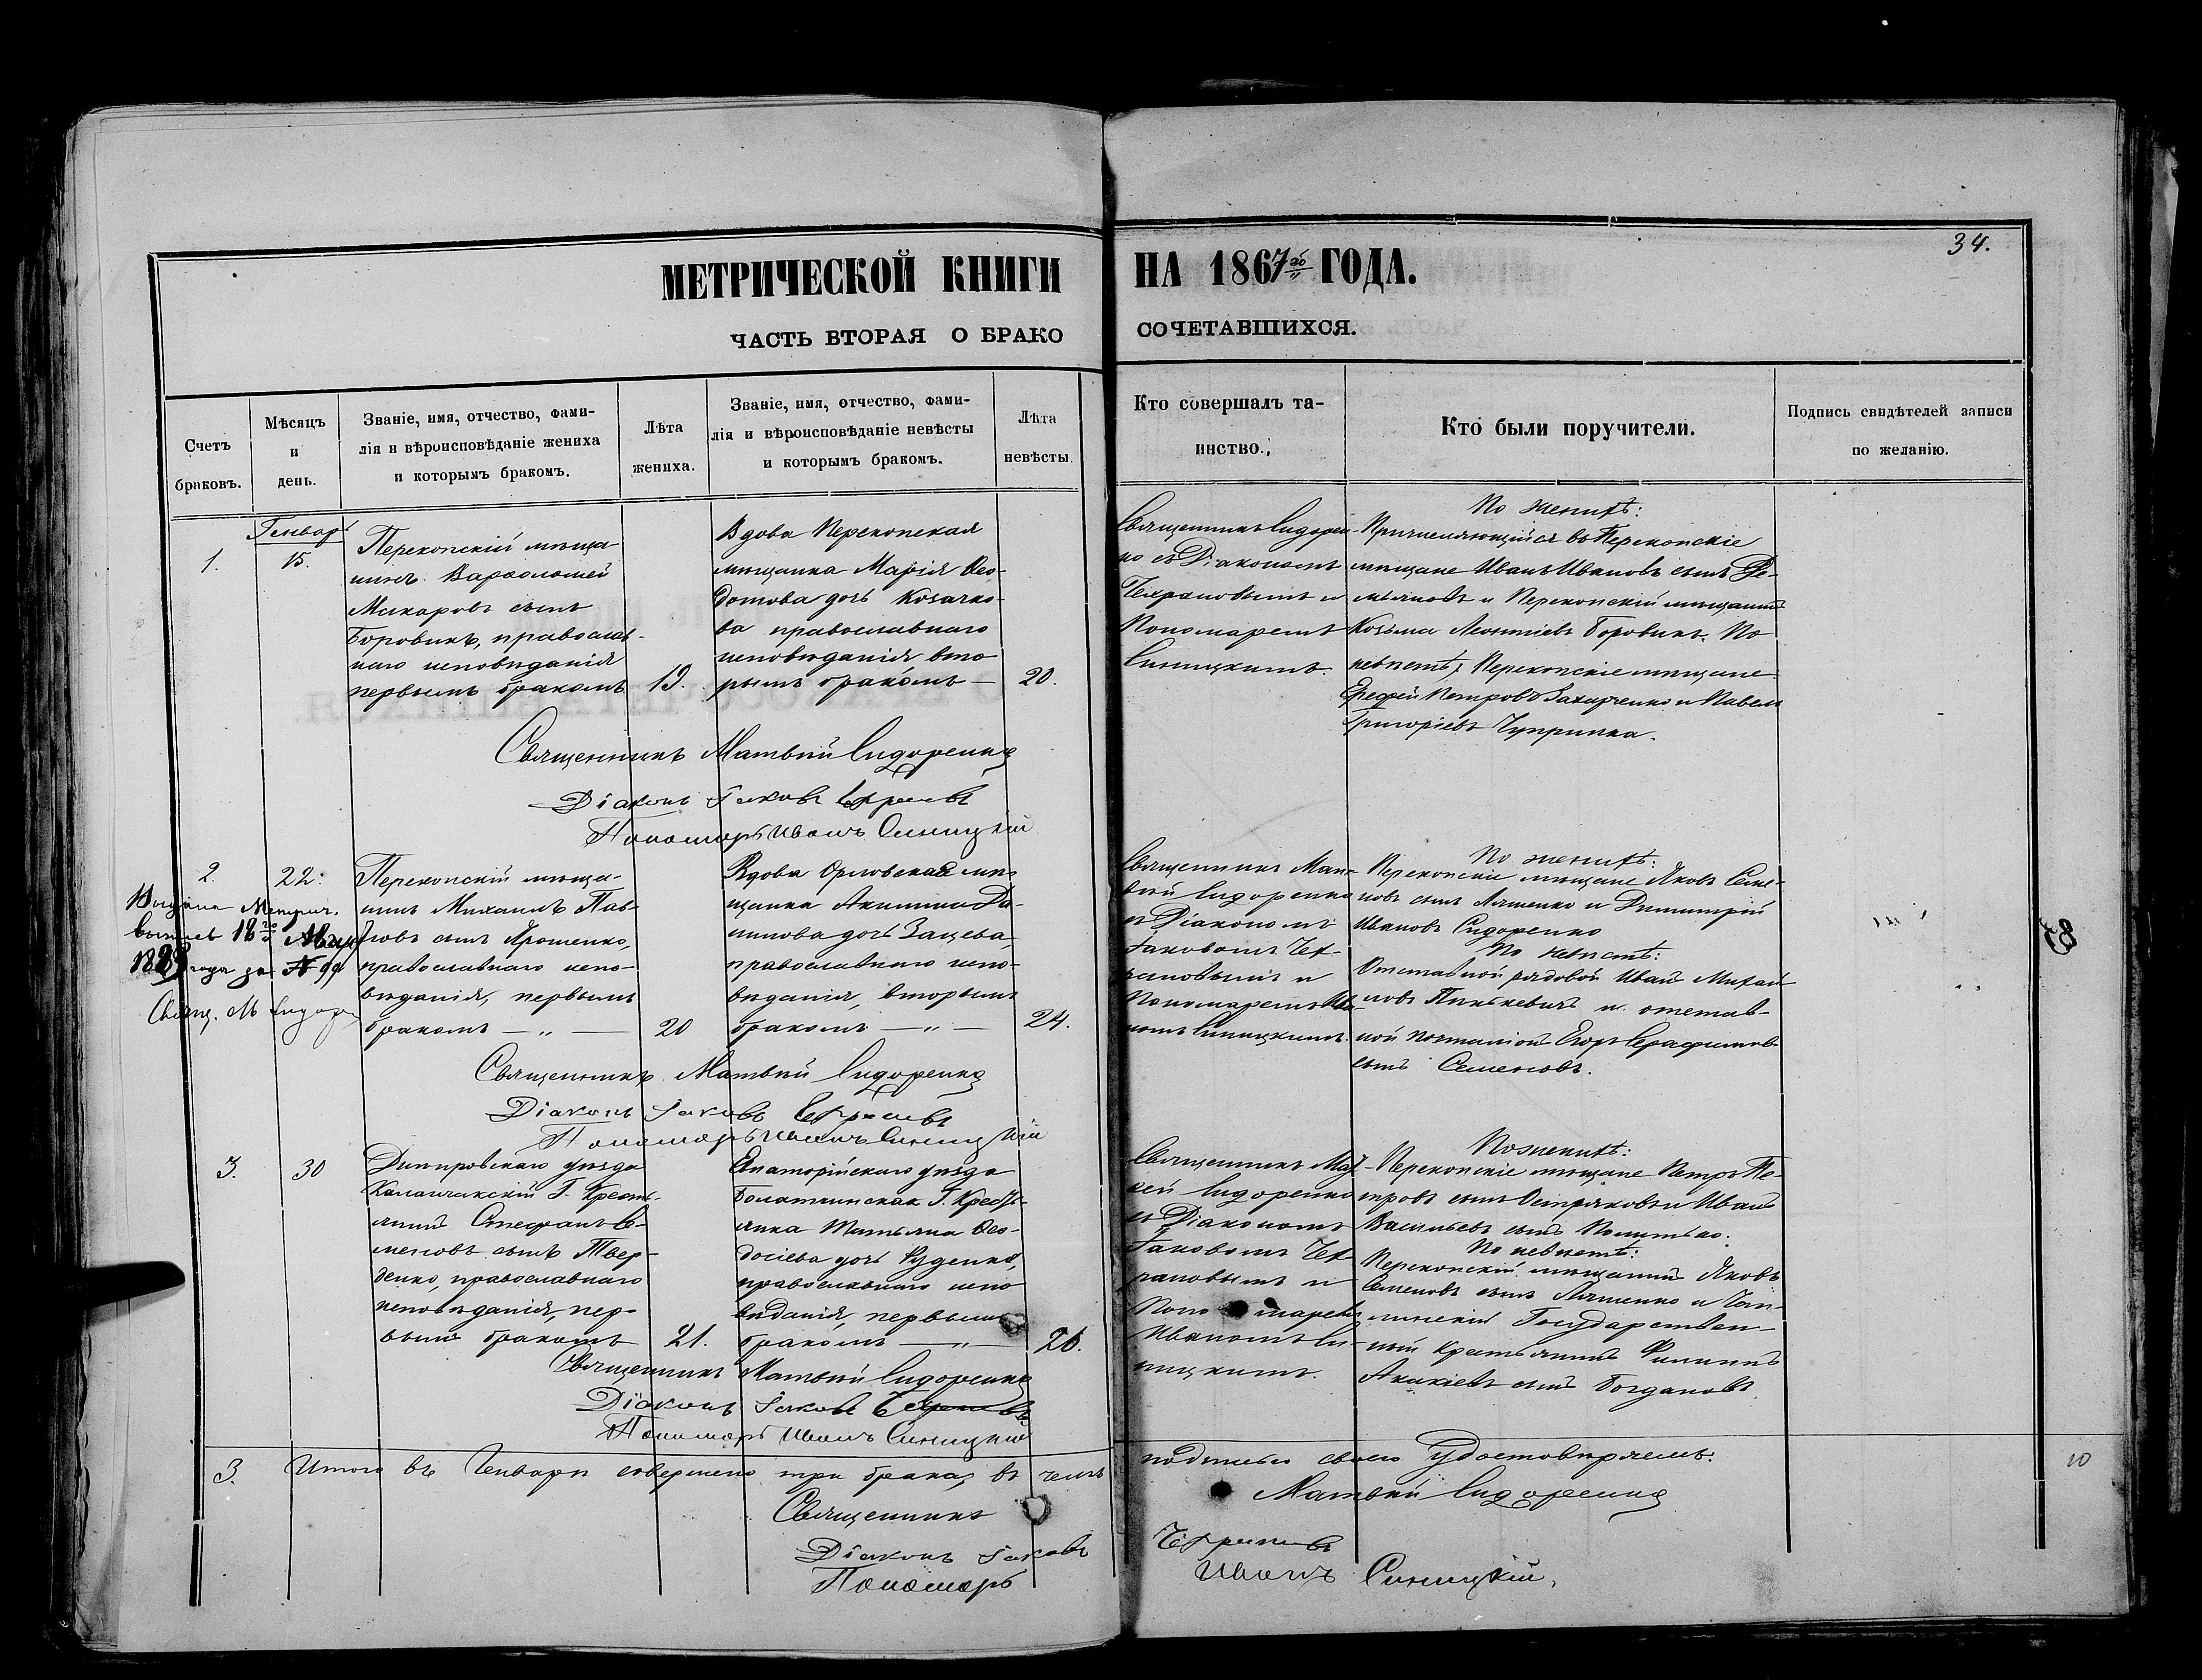 34.
МЕТРИЧЕСКОЙ КНИГИ НА 1867го ГОДА.
ЧАСТЬ ВТОРАЯ О БРАКОСОЧЕТАВШИХСЯ.
Счетъ браковъ.
Мѣсяцъ и день.
Званіе, имя, отчество, фами-
лія и вѣроисповѣданіе жениха
и которымъ бракомъ.
Лѣта жениха.
Званіе, имя, отчество, фами-
лія и вѣроисповѣданіе невѣсты
и которымъ бракомъ.
Лѣта невѣсты.
Кто совершалъ та-
инство.
Кто были поручители.
Подпись свидѣтелей записи
по желанію.
Генварь
1.
15.
Перекопскій мѣща-
нинъ Варѳоломей
Макаровъ сынъ
Боровикъ, православ-
наго исповѣданія
первымъ бракомъ
19.
Вдова Перекопская
мѣщанка Марія Ѳео-
дотова дочь Козачко-
ва православнаго
исповѣданія вто-
рымъ бракомъ —
20.
Священникъ Сидорен-
ко съ Діакономъ
и
Пономаремъ
Синицкимъ.
По женихѣ:
Причисляющійся въ Перекопскіе
мѣщане Иванъ Ивановъ сынъ Де-
и Перекопскій мѣщанинъ
Козьма Леонтіевъ Боровикъ. По
невѣстѣ, Перекопскіе мѣщане
Петровъ Захарченко и Павелъ
Григоріевъ Чупринка.
Священникъ Матвѣй Сидоренко
Діаконъ Іаковъ
Пономарь Иванъ Синицкій
2.
22.
Выдана Метрич.
18
188 года за № 99
Свящ. М Сидорен
Перекопскій мѣща-
нинъ Михаилъ Пав-
ловъ сынъ Ярошенко,
православнаго испо-
вѣданія, первымъ
бракомъ — „ —
20
Вдова Орловская мѣ-
щанка Акилина Да-
нилова дочь Зацева,
православнаго испо-
вѣданія, вторымъ
бракомъ — „ —
24.
Священникъ Мат-
вѣй Сидоренко
съ Діакономъ
Іаковомъ
и
Пономаремъ Ива-
номъ Синицкимъ.
По женихѣ:
Перекопскіе мѣщане Яковъ Семе-
новъ сынъ Ляшенко и Димитрій
Ивановъ Сидоренко
По невѣстѣ:
Отставной рядовой Иванъ Михай-
ловъ Пинькевичъ и отстав-
ной Егоръ Серафимовъ
сынъ Семеновъ.
Священникъ Матвѣй Сидоренко
Діаконъ Іаковъ
Пономарь Иванъ Синицкій
3.
30
Днѣпровскаго уѣзда
Каланчакскій Г. Кресть-
янинъ Стефанъ Се-
меновъ сынъ Твер-
денко, православнаго
исповѣданія, пер-
вымъ бракомъ
21.
Евпаторійскаго уѣзда
Г. Кресть-
янка Татьяна Ѳео-
досіева дочь Руденко,
православнаго испо-
вѣданія, первымъ
бракомъ — „ —
20.
Священникъ Мат-
вей Сидоренко
съ Діакономъ
Іаковомъ
и
Пономаремъ
Иваномъ Си-
ницкимъ.
По женихѣ:
Перекопскіе мѣщане Петръ Пе-
тровъ сынъ Остряковъ и Иванъ
Васильевъ сынъ
По невѣстѣ:
Перекопскій мѣщанинъ Яковъ
Семеновъ сынъ Ляшенко и Чап-
линскій Государствен-
ный крестьянинъ Филиппъ
Акакіевъ сынъ Богдановъ.
Священникъ Матвѣй Сидоренко
Діаконъ Іаковъ
Пономарь Иванъ Синицкій
3. Итого въ Генварѣ совершено три брака, въ чемъ подписью своею удостовѣряемъ.
Священникъ Матвѣй Сидоренко
Діаконъ Іаковъ
Пономарь Иванъ Синицкій.
10